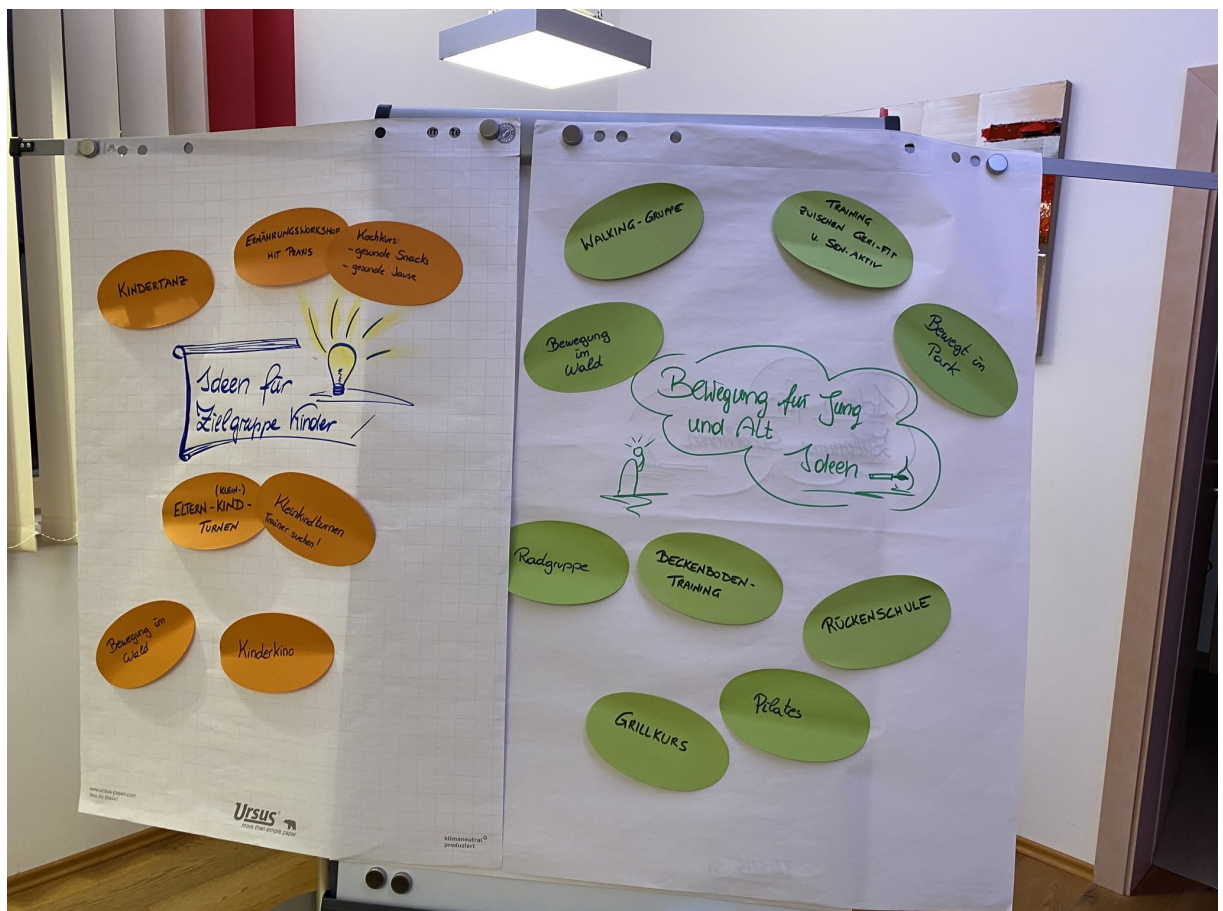 KINDERTANZ
ERNÄHRUNGSWORKSHOP
MIT PRAXIS
Kochkurs:
- gesunde Snacks
- gesunde Jause
Ideen für
Zielgruppe Kinder
(KLEIN-)
ELTERN-KIND-
TURNEN
Kleinkindturnen
Trainer suchen!
Bewegung im
Wald
Kinderkino
www.ursus-paper.com
Ursus
more than simple paper
klimaneutral
produziert
WALKING-GRUPPE
TRAINING
ZWISCHEN GERI-FIT
U. SEN.AKTIV
Bewegung
im
Wald
Bewegt im
Park
Bewegung für Jung
und Alt
Ideen
Radgruppe
BECKENBODEN-
TRAINING
RÜCKENSCHULE
Pilates
GRILLKURS